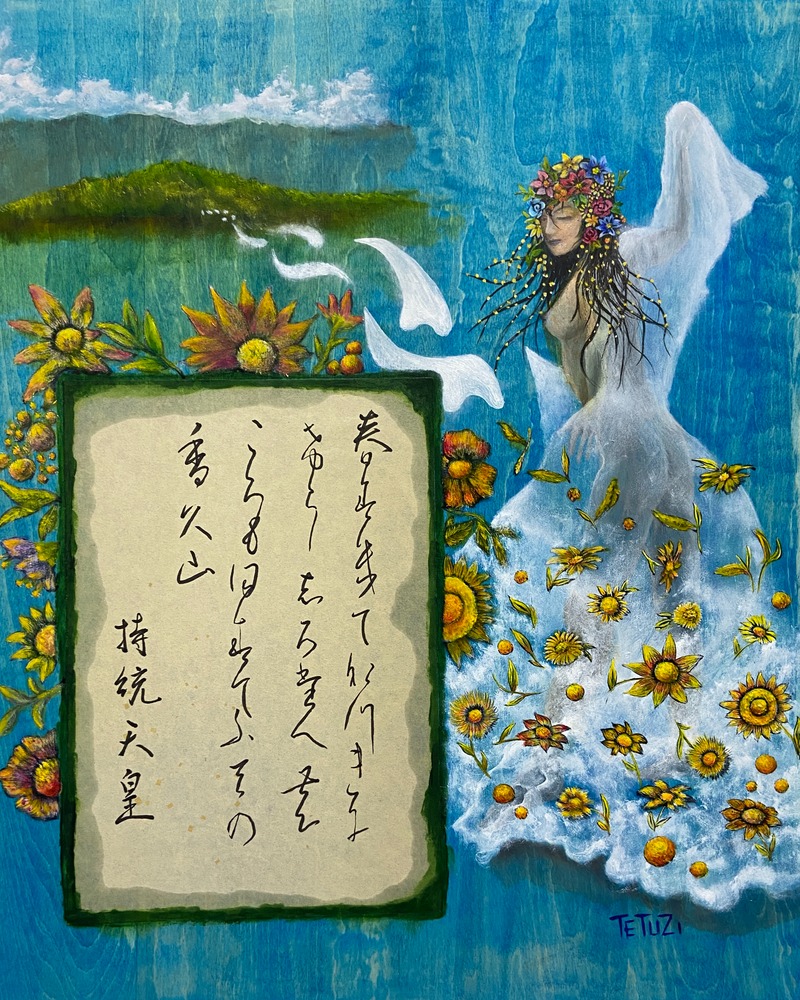 春すきてなつきに
けらし志ろ堂への
ころもほすてふ天の
香久山
持統天皇
TETUZI